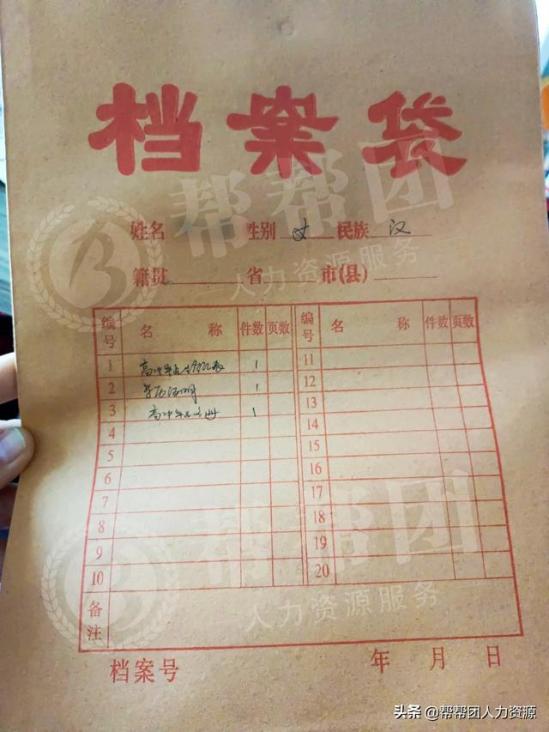 档案袋
姓名 性别 女 民族 汉
籍贯 省 市(县)
编号 名 称 件数 页数 编号 名 称 件数 页数
1 高中毕业生登记表 1 11
2 学历证明 1 12
3 高中毕业生册 1 13
4 14
5 15
6 16
7 17
8 18
9 19
10 20
备注
档案号 年 月 日
帮帮团
人力资源服务
帮帮团
人力资源服务
头条 @帮帮团人力资源